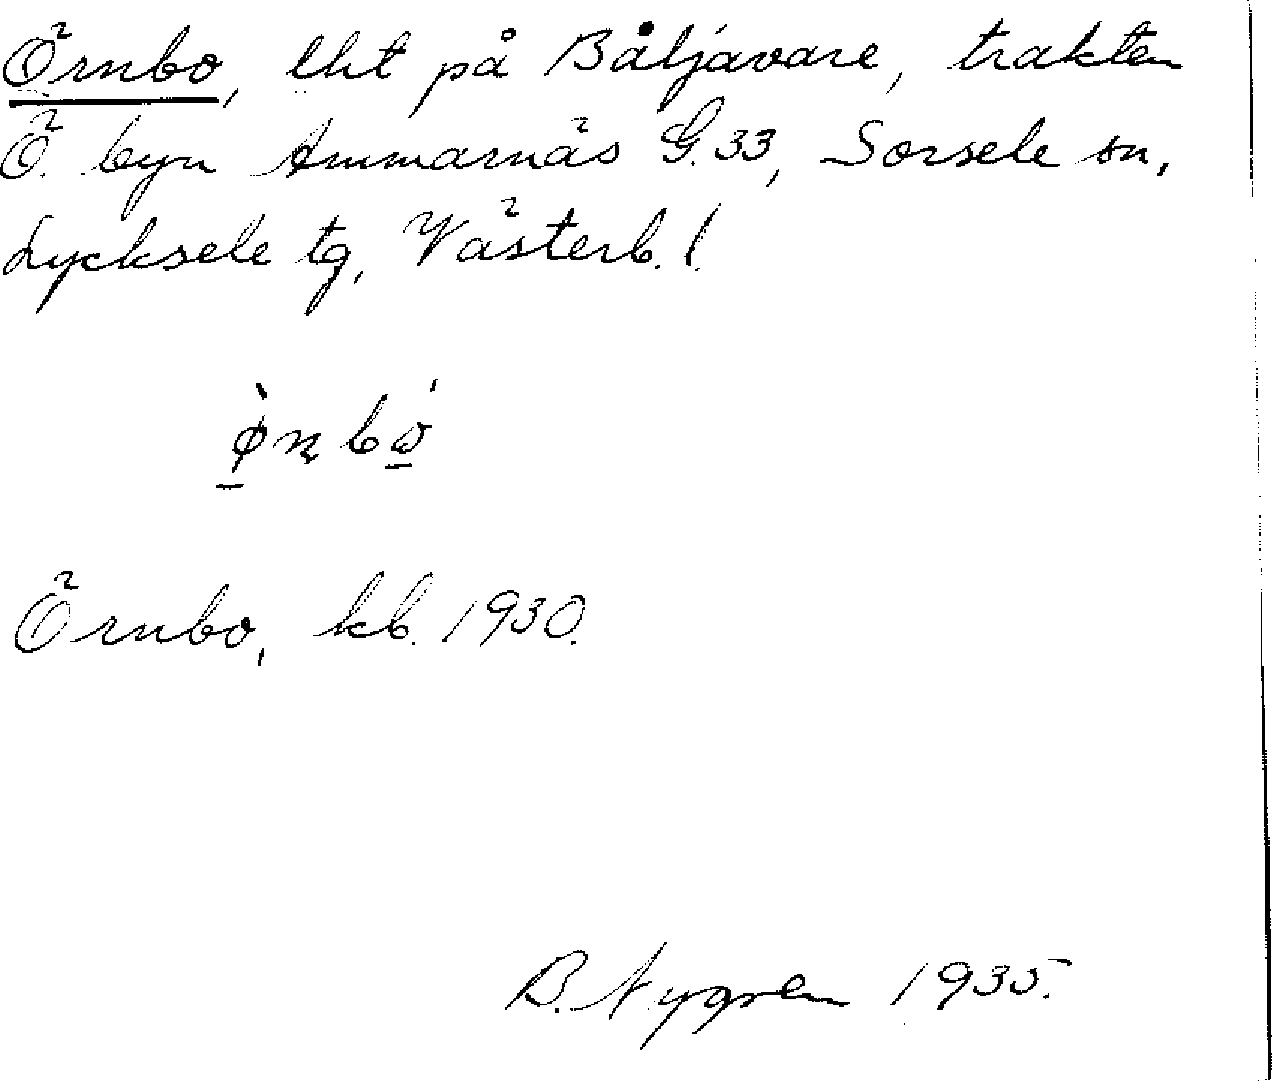 Örnbo, lht på Båljavare, trakten
Ö. byn Ammarnäs G. 33, Sorsele sn,
Lycksele tg, Västerb. l.
Örnbo, kb. 1930.
B. Nygren 1935.